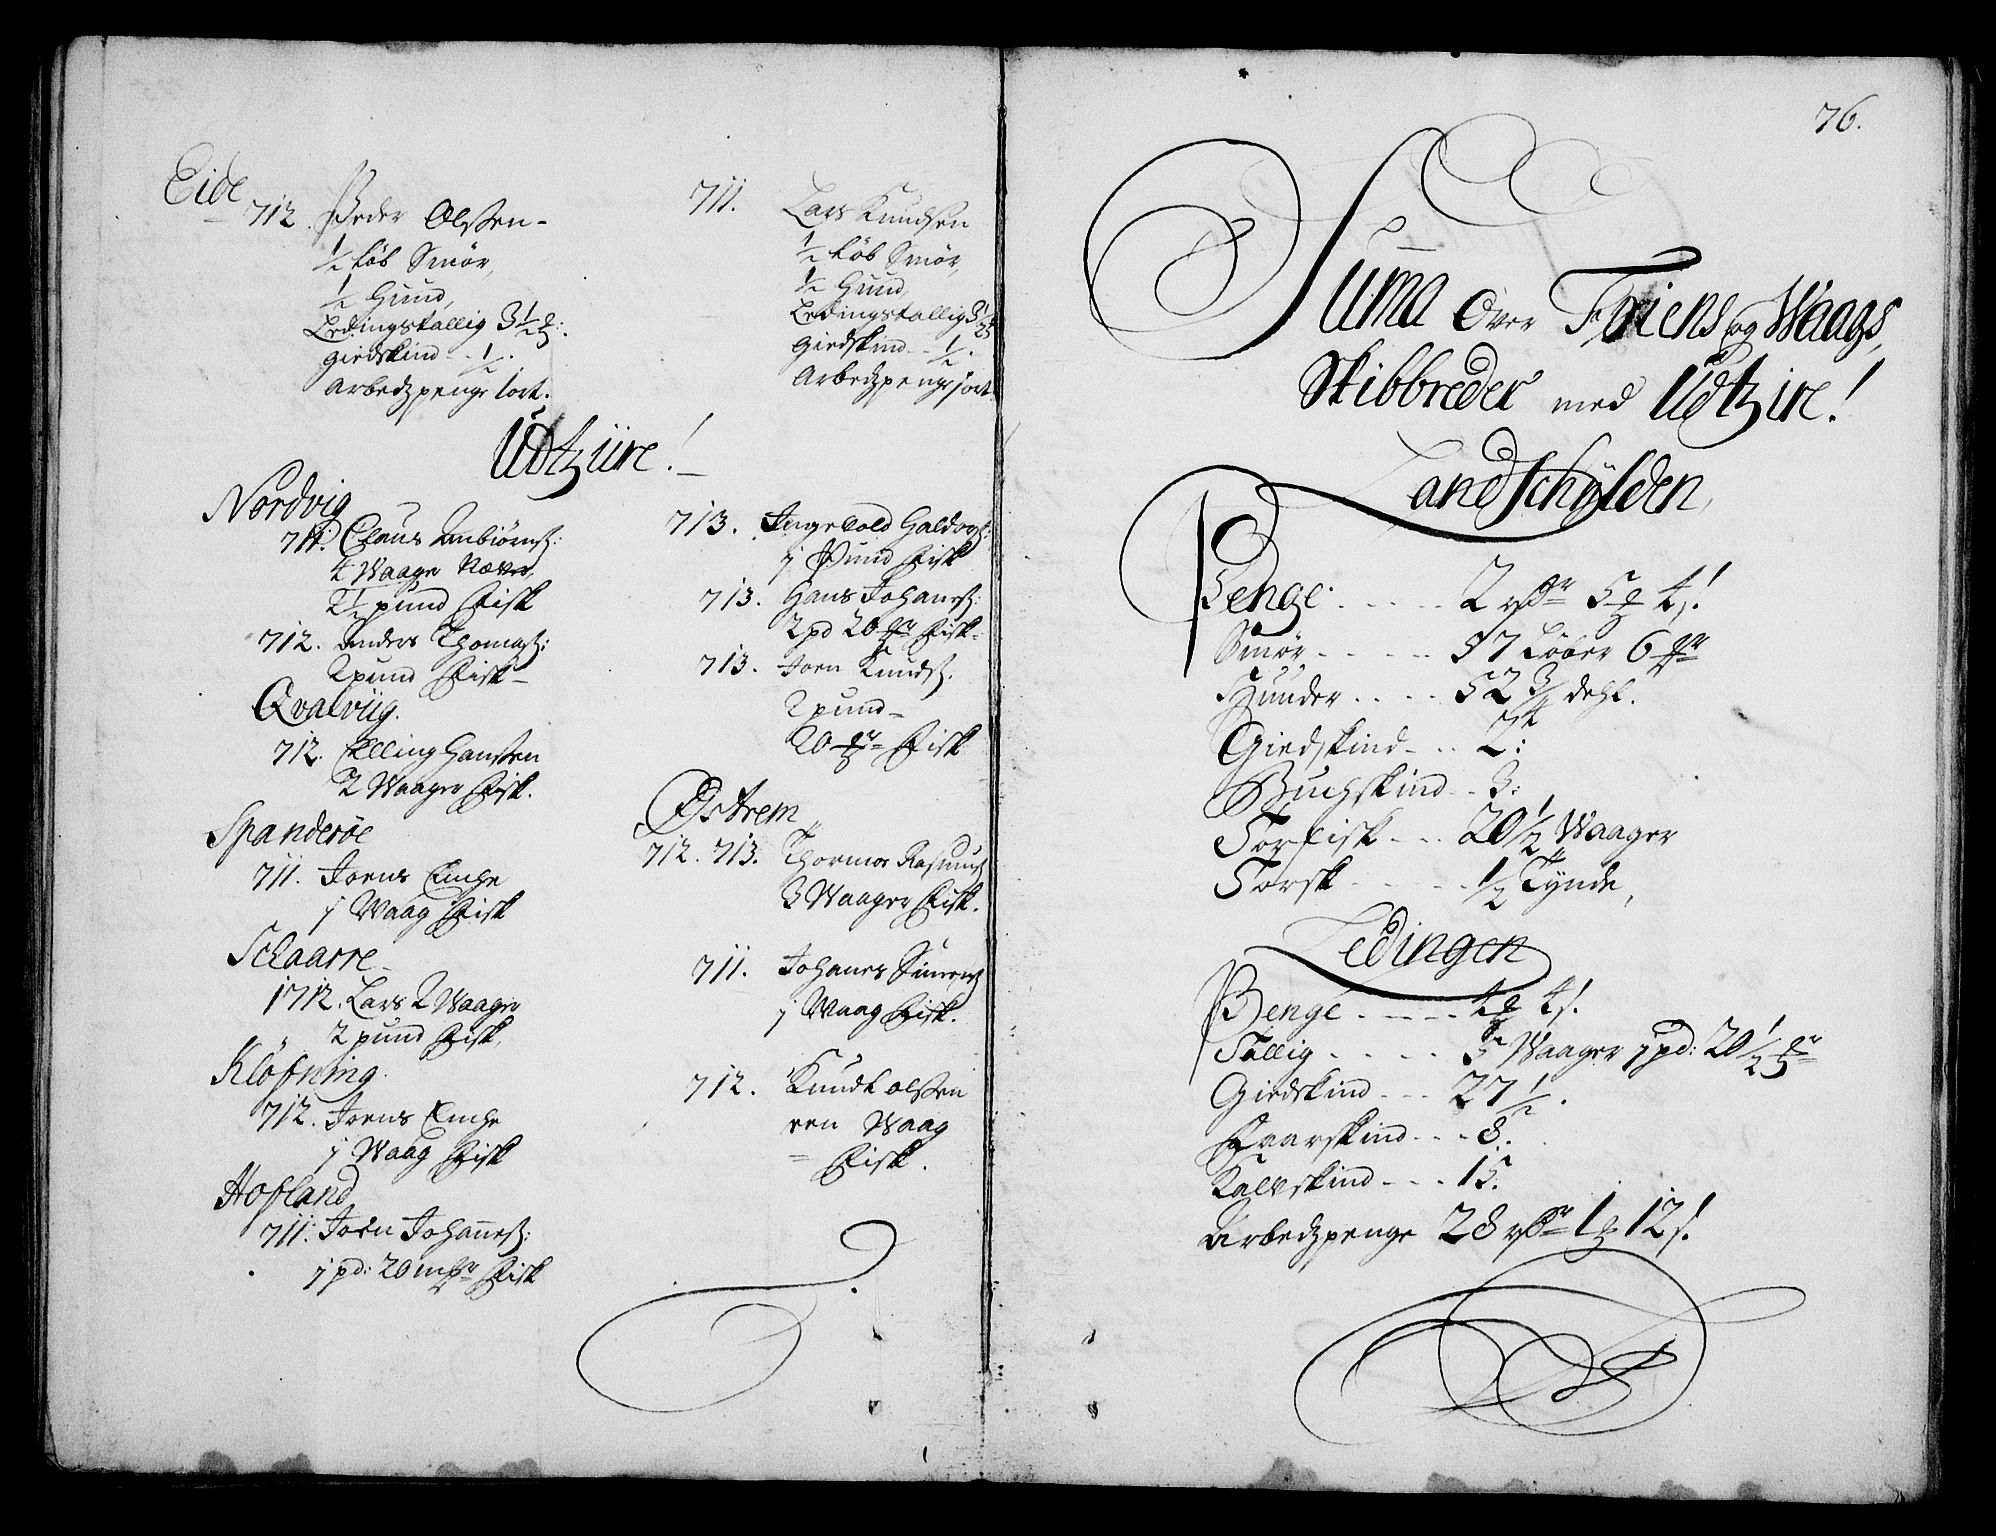 Eide
712. Peder Olssen
1/2 Løb Smør,
1/2 Huud,
Ledingstallig 3 1/2 ℔:
giedskind - - 1/2.
Arbedzpenge 1 ort.
711. Lars Knudsen
1/2 Løb Smør,
1/2 Huud,
Ledingstallig 3 1/2 ℔
Giedskind - - 1/2.
Arbedzpenge j ort
Udtziire!
Nordvig
711. Claus Anbiørns:
4 Waager Næver,
2 1/2 pund Fisk
712. Anders Thomas:
2 pund Fisk
Qvalviig.
712. Elling Hanssen
2 Waager Fisk.
Spanderøe
711. Joens Enche
j Waag Fisk
Schaarre
1712. Lars 2 Waager
2 pund Fisk,
Kløfning.
712. Joens Enche
j Waag Fisk
Hofland
711. Joen Johannes:
j pd: 20 mkr Fisk
713. Ingebold Haldogs:
j Pund Fisk
713. Hans Johanes:
2 pd 20 mkr Fisk
713. Joen Knuds.
2 pund
20 mkr Fisk
Østrem
712. 713. Thormoe Rasmus
3 Waager Fisk.
711. Johanes Simens
j Waag Fisk.
712. Knudt Olssen
een Waag
Fisk.
76.
Suma Over Føiens og Waags,
Skibbreder med Udtzire!
Landschylden,
Penge - - - - - 2 rdr 5 ₰ 4 s!
Smør - - - - - 37 Løber 6 mkr
Huuder - - - - 52 3/4 dehl.
Giedskind - - - 2:
Buchskind - - 3:
Torfisk - - - 20 1/2 Waager
Torsk - - - - - 1/2 Tynde,
Ledingen
Penge - - - - - 4 ₰ 4 s!
Tallig - - - - 5 Waager j pd: 20 1/2 ℔r
Giedskind - - - 27 1/2.
Faarskind - - - 8.
Kalvskind - - - 15.
Arbedzpenge 28 rdr 1 ₰ 12 s!